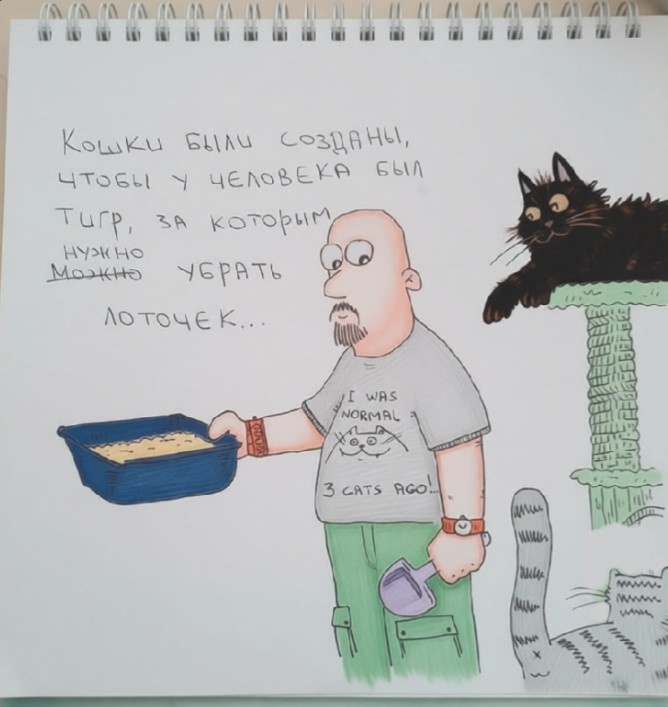 Кошки были созданы,
чтобы у человека был
Тигр, за которым
нужно
~~Можно~~ убрать
лоточек...
I WAS
NORMAL
3 CATS AGO!